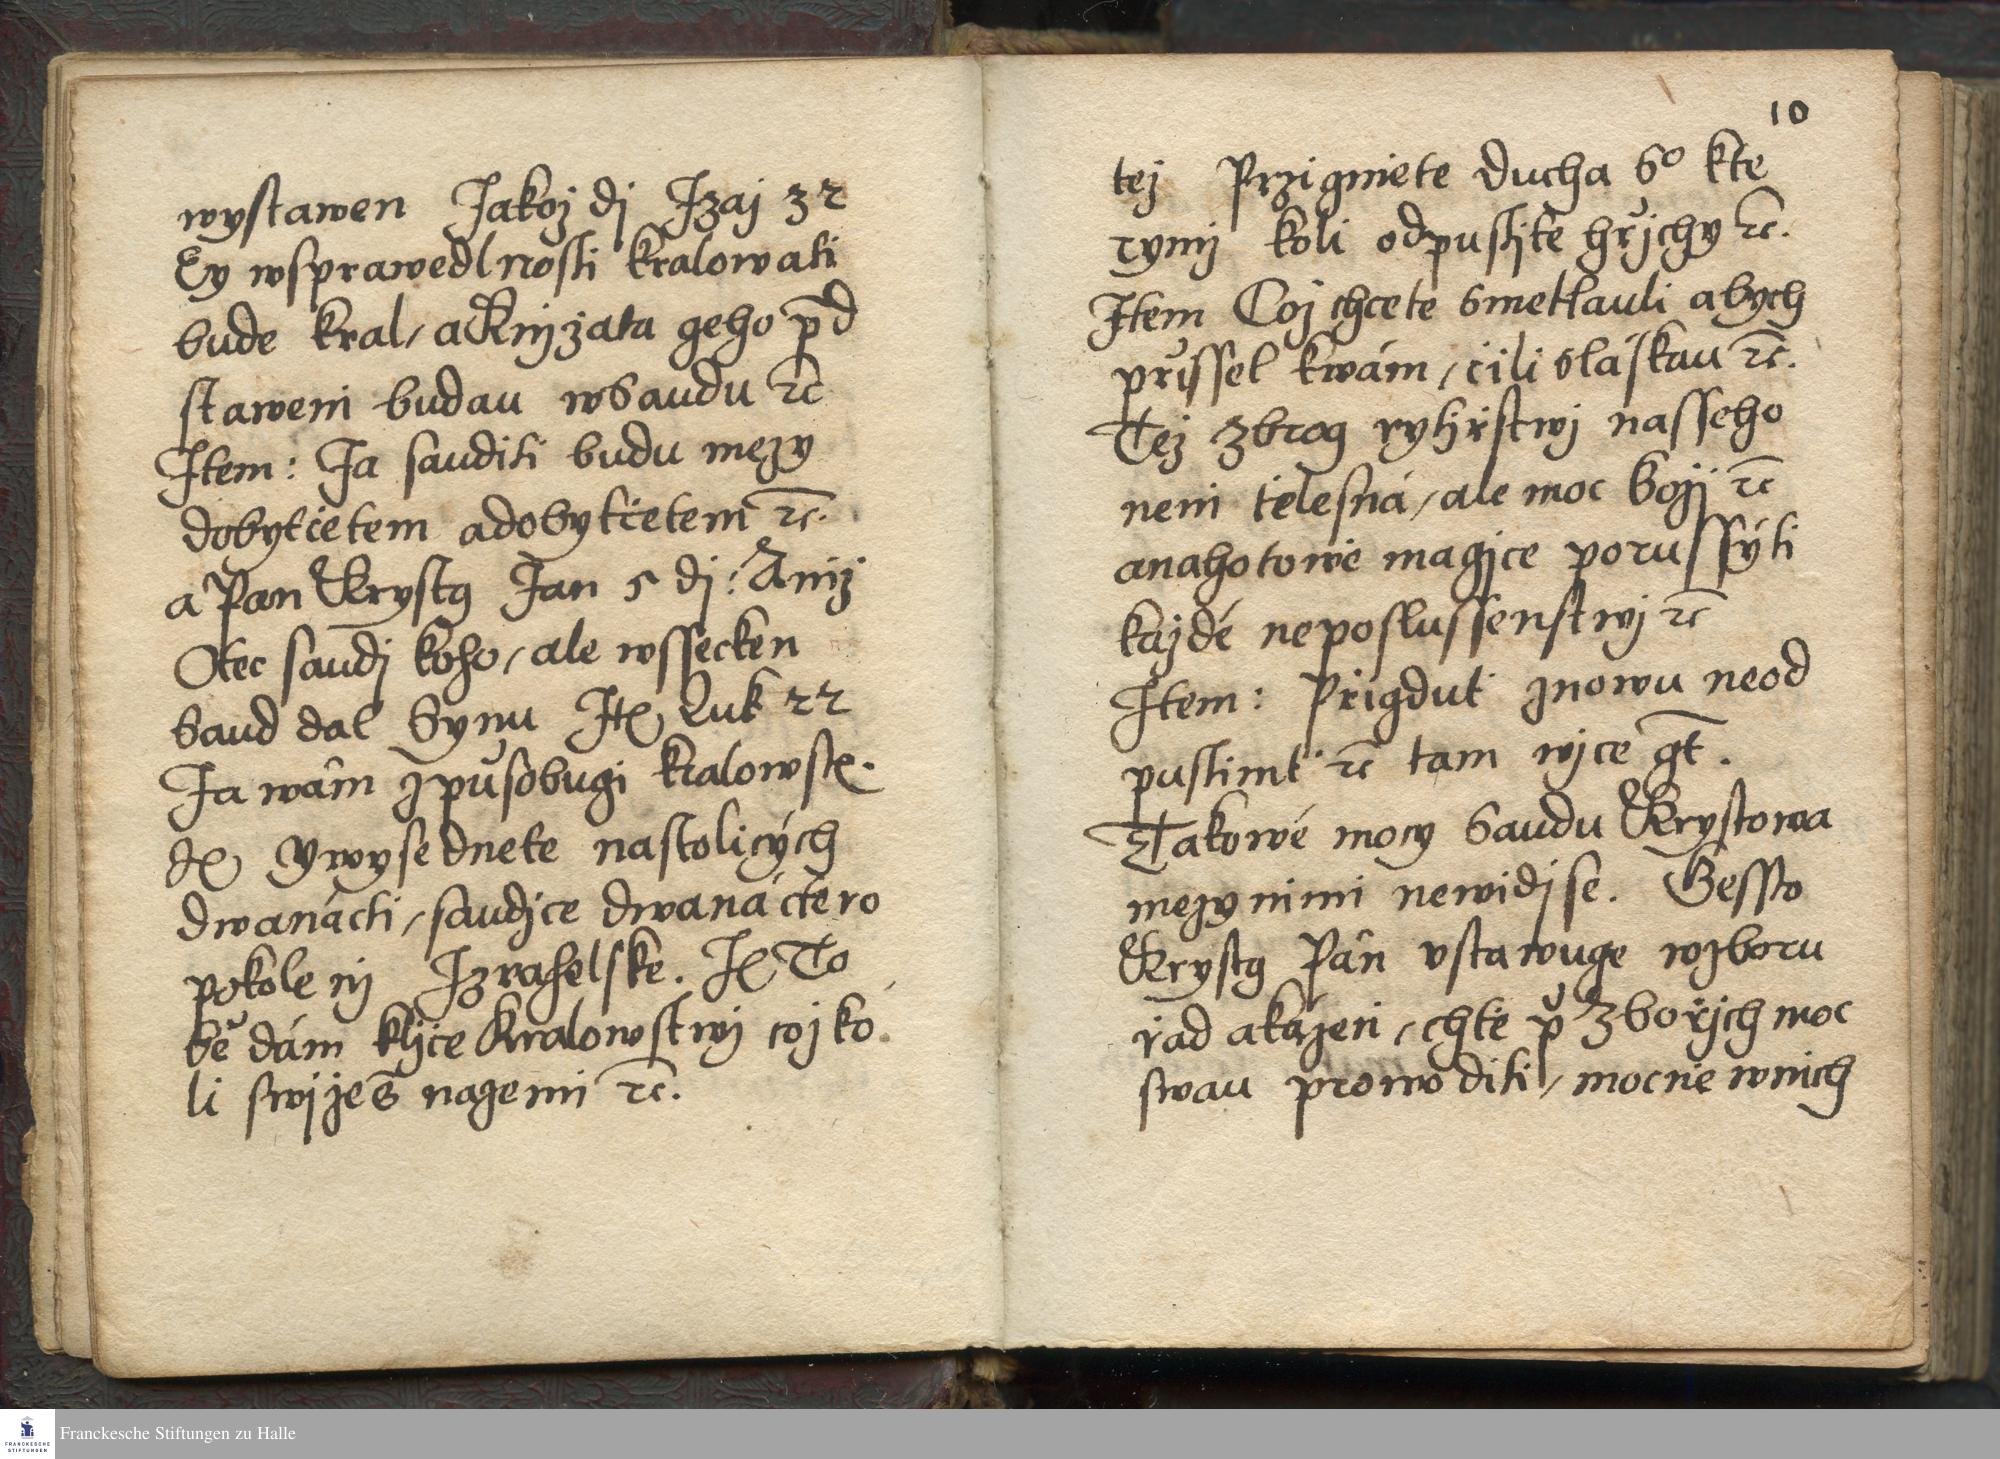 wystawen Jakoz dj Izaj 32
Ey wsprawedlnosti kralowati
bude kral, a Knijzata geho p̄d
staweni budau w saudu ꝛc̄
Item: Ja sauditi budu mezy
dobytčetem a dobytčetem ꝛc̄.
a Pan Krystg Jan 5 dj: Aniz
Otec saudj koho, ale wssecken
saud dal Synu It Luk 22
Ja wâm způsobugi kralowst.
Y wysednete na stolicých
dwanácti, saudjce dwanáctero
pokolenj Izrahelske. I To
bě dám kljče Kralowstwj cožko
li swjžeš na zemi ꝛc̄.
10
tež Przigmete Ducha So kte
rymž koli odpustjte hřjchy ꝛc̄.
Item Což chcete s metlauli abych
přissel k wám, čili s láskau ꝛc̄.
Tež Zbrog rytiřstwj nasseho
neni tělesná, ale moc Božj ꝛc̄
a na hotowě magjce porussýti
každé neposlussenstwj ꝛc̄
Item: Přigduť znowu neod
pustimť ꝛc̄ tam wjce gt̄.
Takowé mocy Saudu Krystowa
mezy nimi newidj se. Gessto
Krystg Pân vstawuge w zboru
řad a kázeň, chtě p̌ Zbořjch moc
swau prowoditi, mocně w nich
Franckesche Stiftungen zu Halle
FRANCKESCHE
STIFTUNGEN